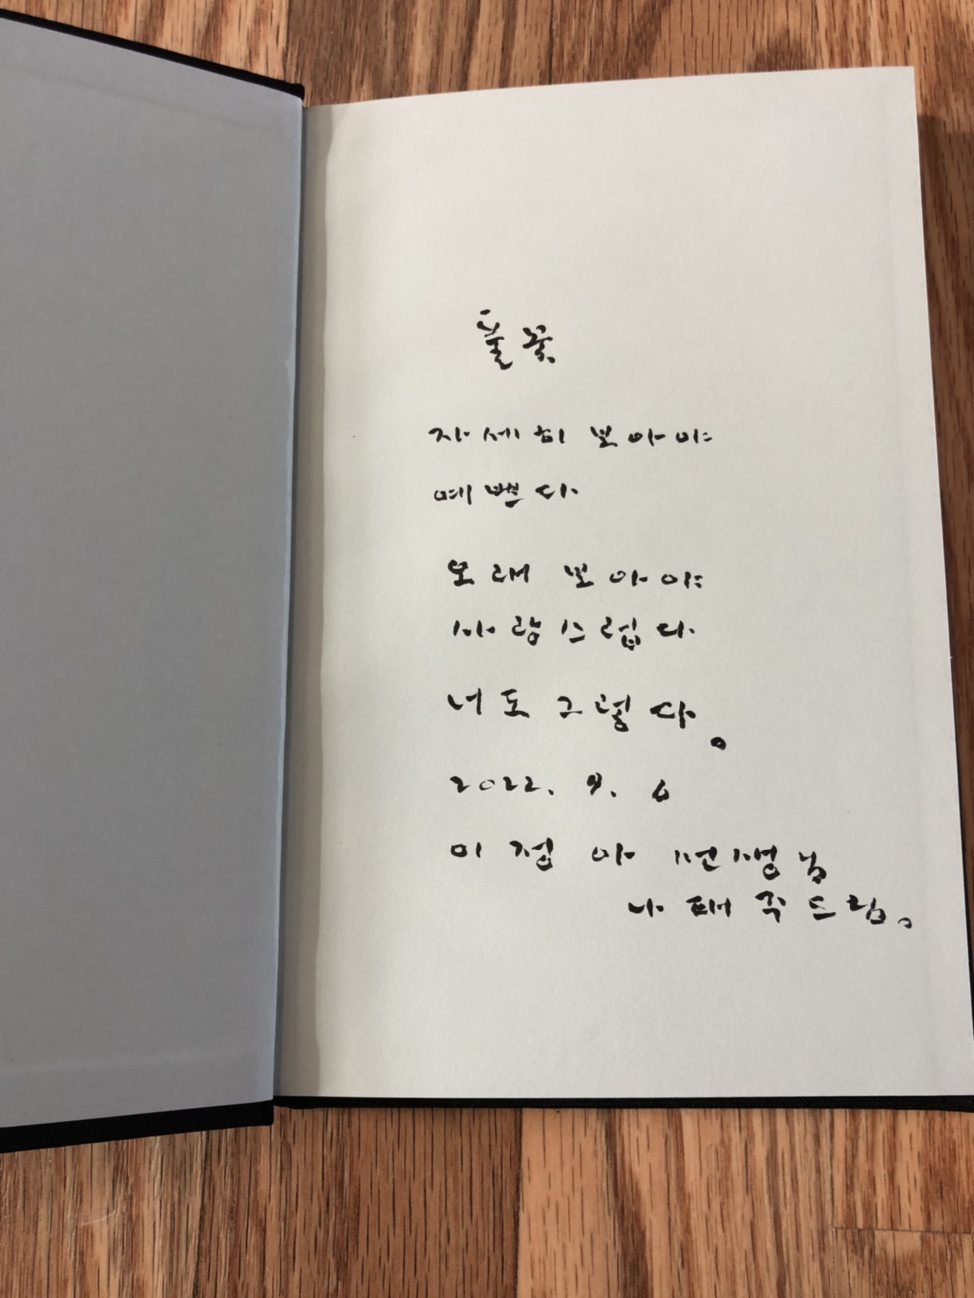 풀꽃
자세히 보아야
예쁘다
오래 보아야
사랑스럽다
너도 그렇다。
2022. 9. 6
이정아 선생님
나태주드림。